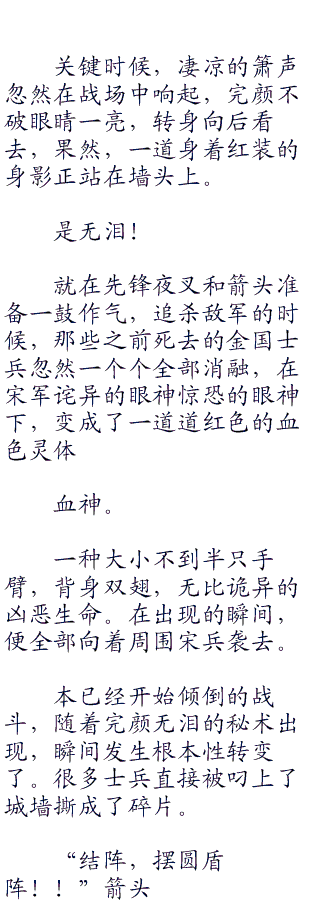 关键时候，凄凉的箫声
忽然在战场中响起，完颜不
破眼睛一亮，转身向后看
去，果然，一道身着红装的
身影正站在墙头上。
是无泪！
就在先锋夜叉和箭头准
备一鼓作气，追杀敌军的时
候，那些之前死去的金国士
兵忽然一个个全部消融，在
宋军诧异的眼神惊恐的眼神
下，变成了一道道红色的血
色灵体
血神。
一种大小不到半只手
臂，背身双翅，无比诡异的
凶恶生命。在出现的瞬间，
便全部向着周围宋兵袭去。
本已经开始倾倒的战
斗，随着完颜无泪的秘术出
现，瞬间发生根本性转变
了。很多士兵直接被叼上了
城墙撕成了碎片。
“结阵，摆圆盾
阵！！”箭头